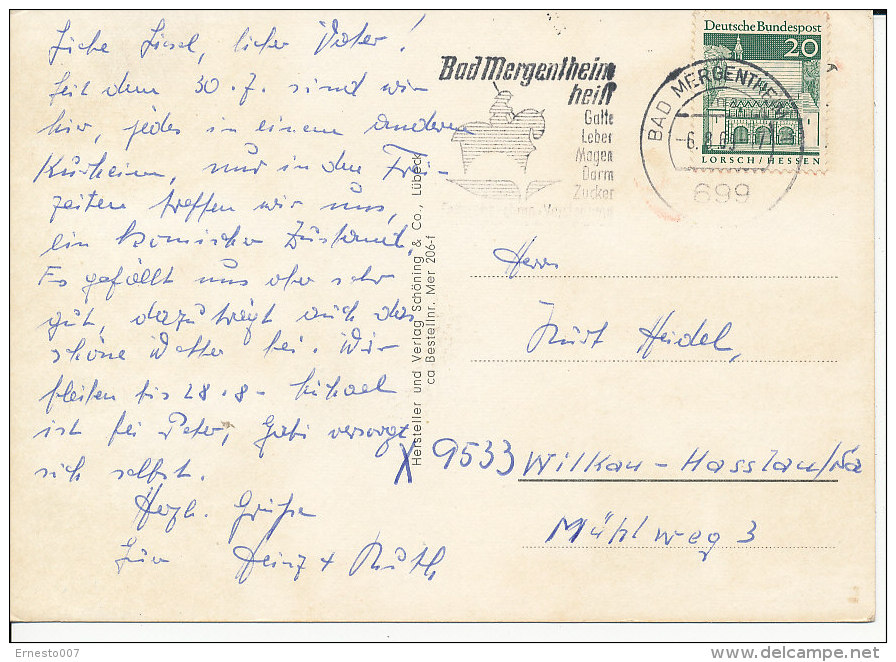 Liebe Liesel, lieber Vater!
Seit dem 30.7. sind wir
hier, jedes in einem anderen
Kurheim, nur in den Frei-
zeiten treffen wir uns,
ein komischer Zustand.
Es gefällt uns aber sehr
gut, dazu trägt auch das
schöne Wetter bei. Wir
bleiben bis 28.8. Michael
ist bei Peter, Gabi versorgt
sich selbst.
Herzl. Grüße
Heinz + Ruth
Hersteller und Verlag Schöning & Co., Lübeck
ca Bestellnr. Mer 206-f
Bad Mergentheim
heilt
Galle
Leber
Magen
Darm
Zucker
BAD MERGENTHEIM
699
Deutsche Bundespost
20
LORSCH/HESSEN
Herrn
Kurt Heidel,
X 9533 Wilkau-Hasslau/Sa
Mühlweg 3
Ernesto007
delcampe.net